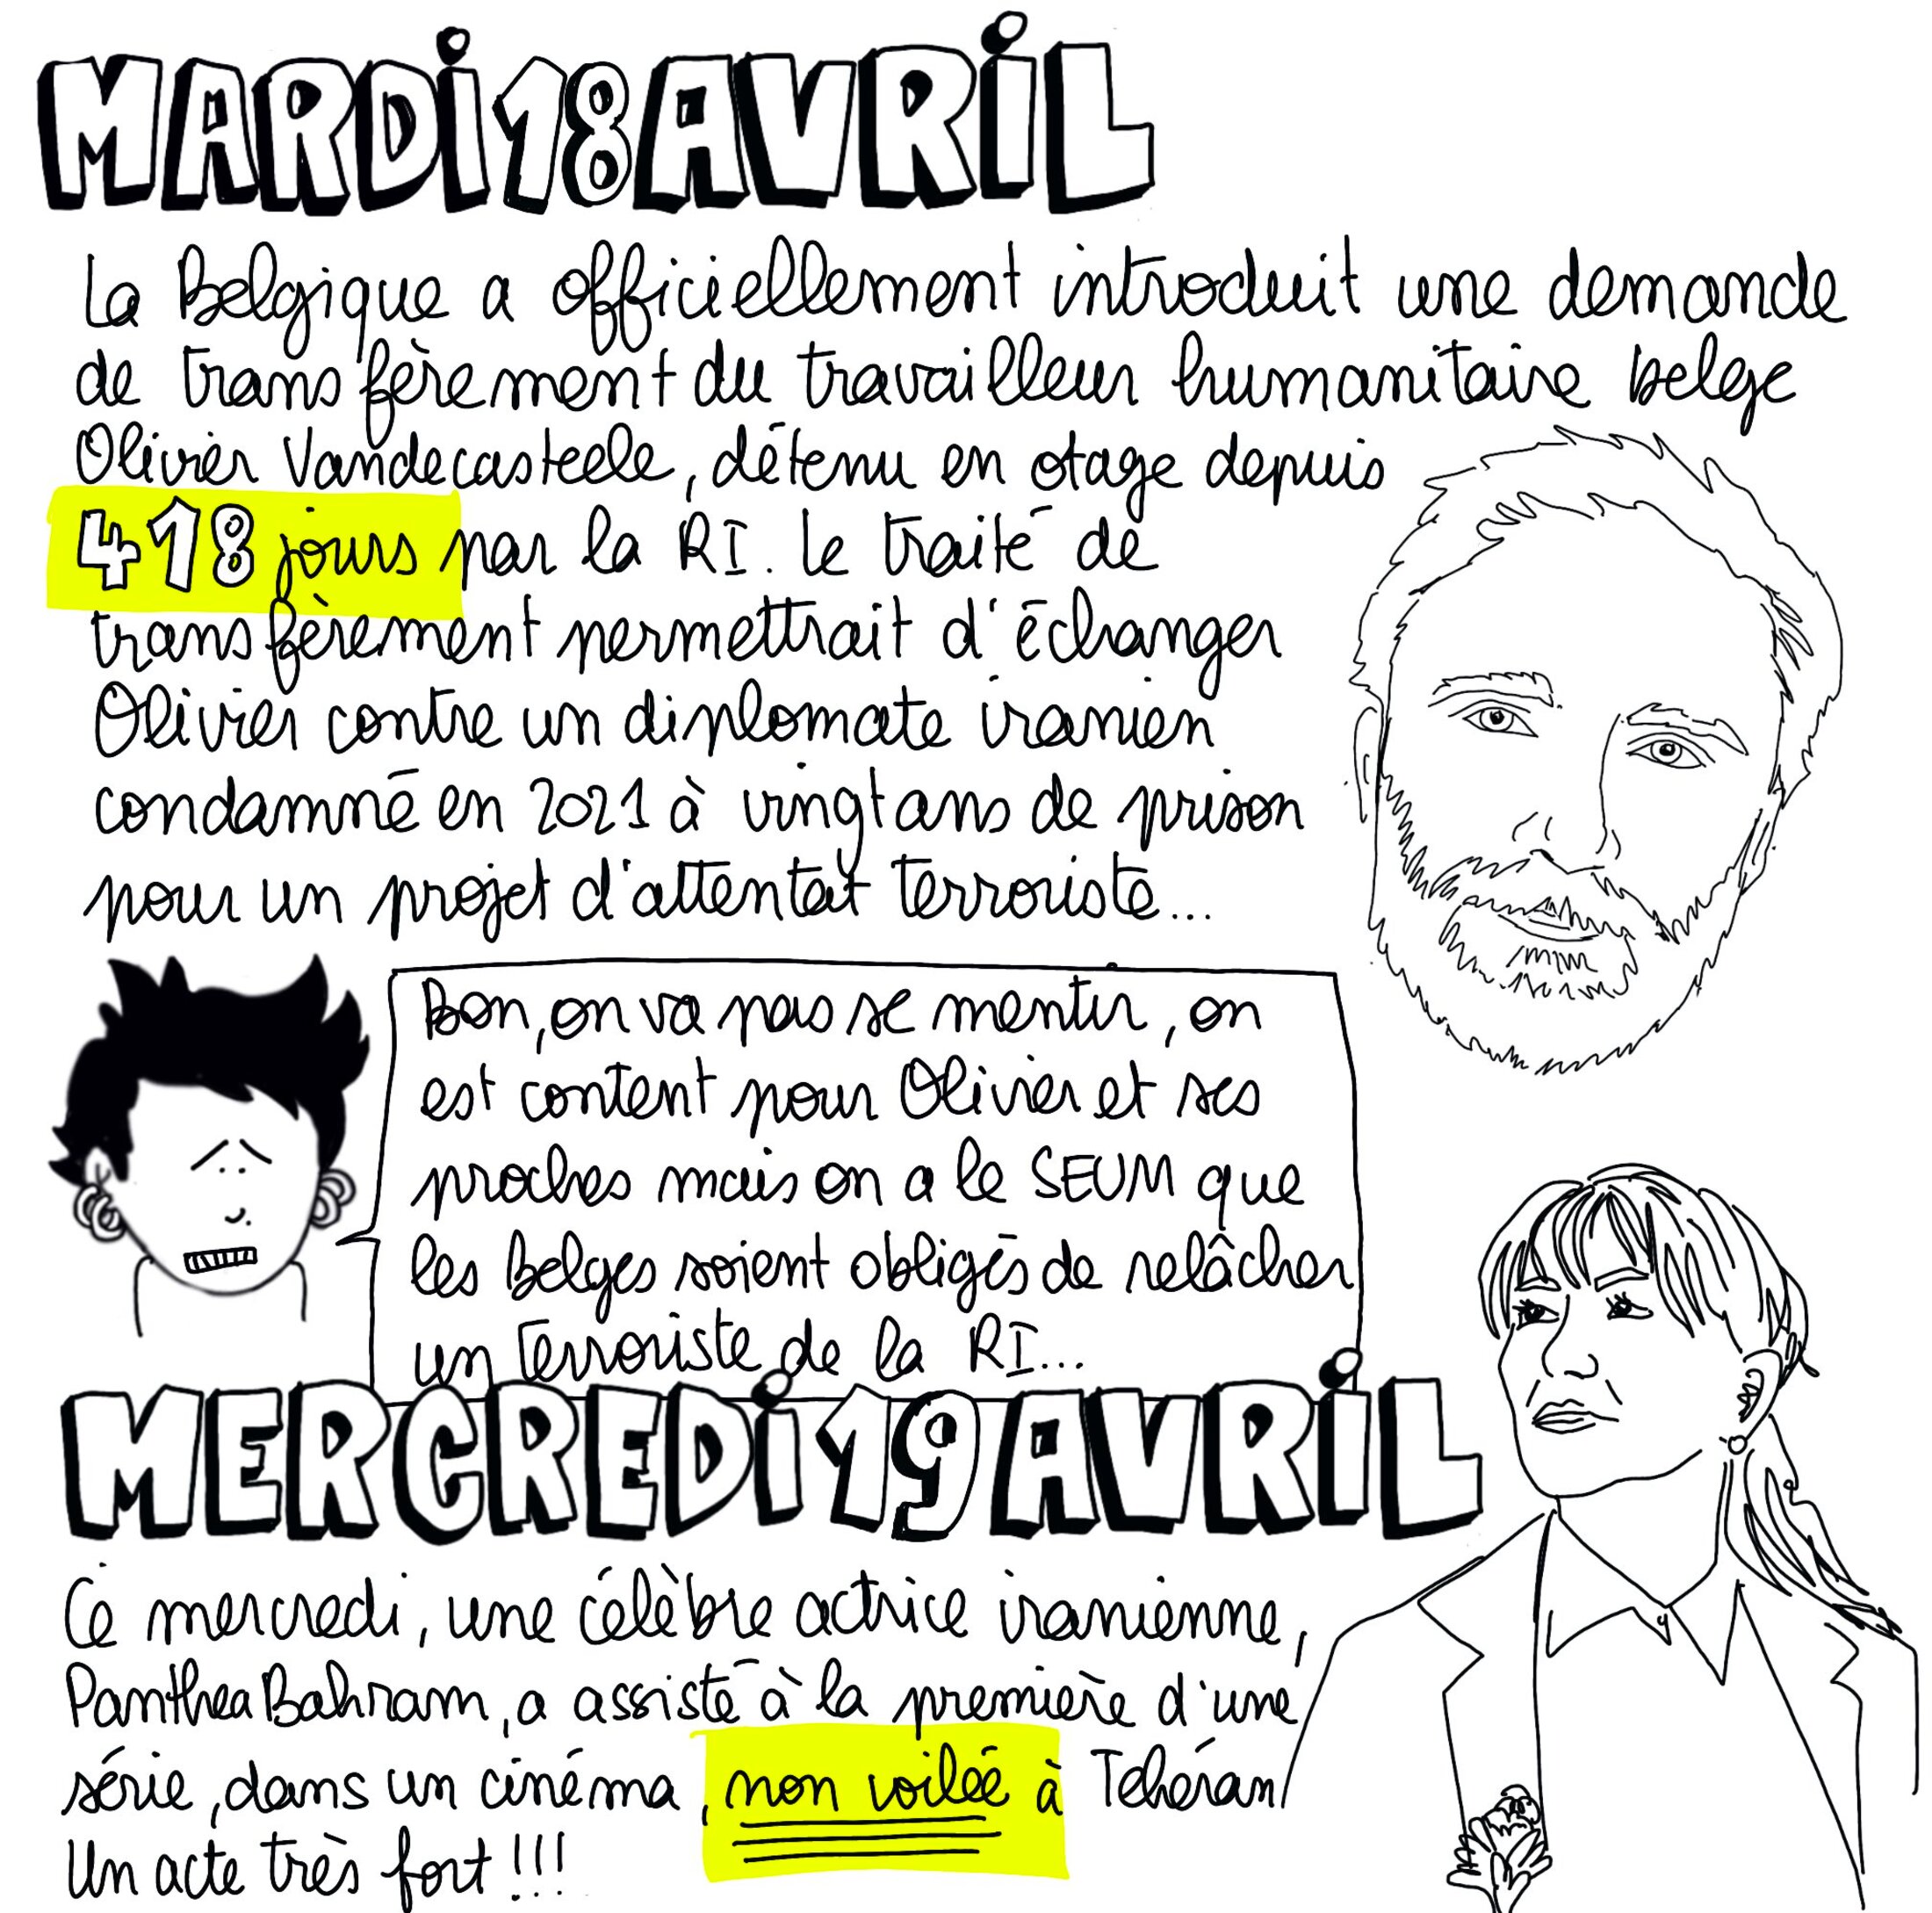 MARDI 18 AVRIL
La Belgique a officiellement introduit une demande
de transfèrement du travailleur humanitaire belge
Olivier Vandecasteele, détenu en otage depuis
418 jours par la RI. Le traité de
transfèrement permettrait d'échanger
Olivier contre un diplomate iranien
condamné en 2021 à vingt ans de prison
pour un projet d'attentat terroriste...
Bon, on va pas se mentir, on
est content pour Olivier et ses
proches mais on a le SEUM que
les Belges soient obligés de relâcher
un terroriste de la RI...
MERCREDI 19 AVRIL
Ce mercredi, une célèbre actrice iranienne,
Panthea Bahram, a assisté à la première d'une
série, dans un cinéma, non voilée à Téhéran
Un acte très fort !!!